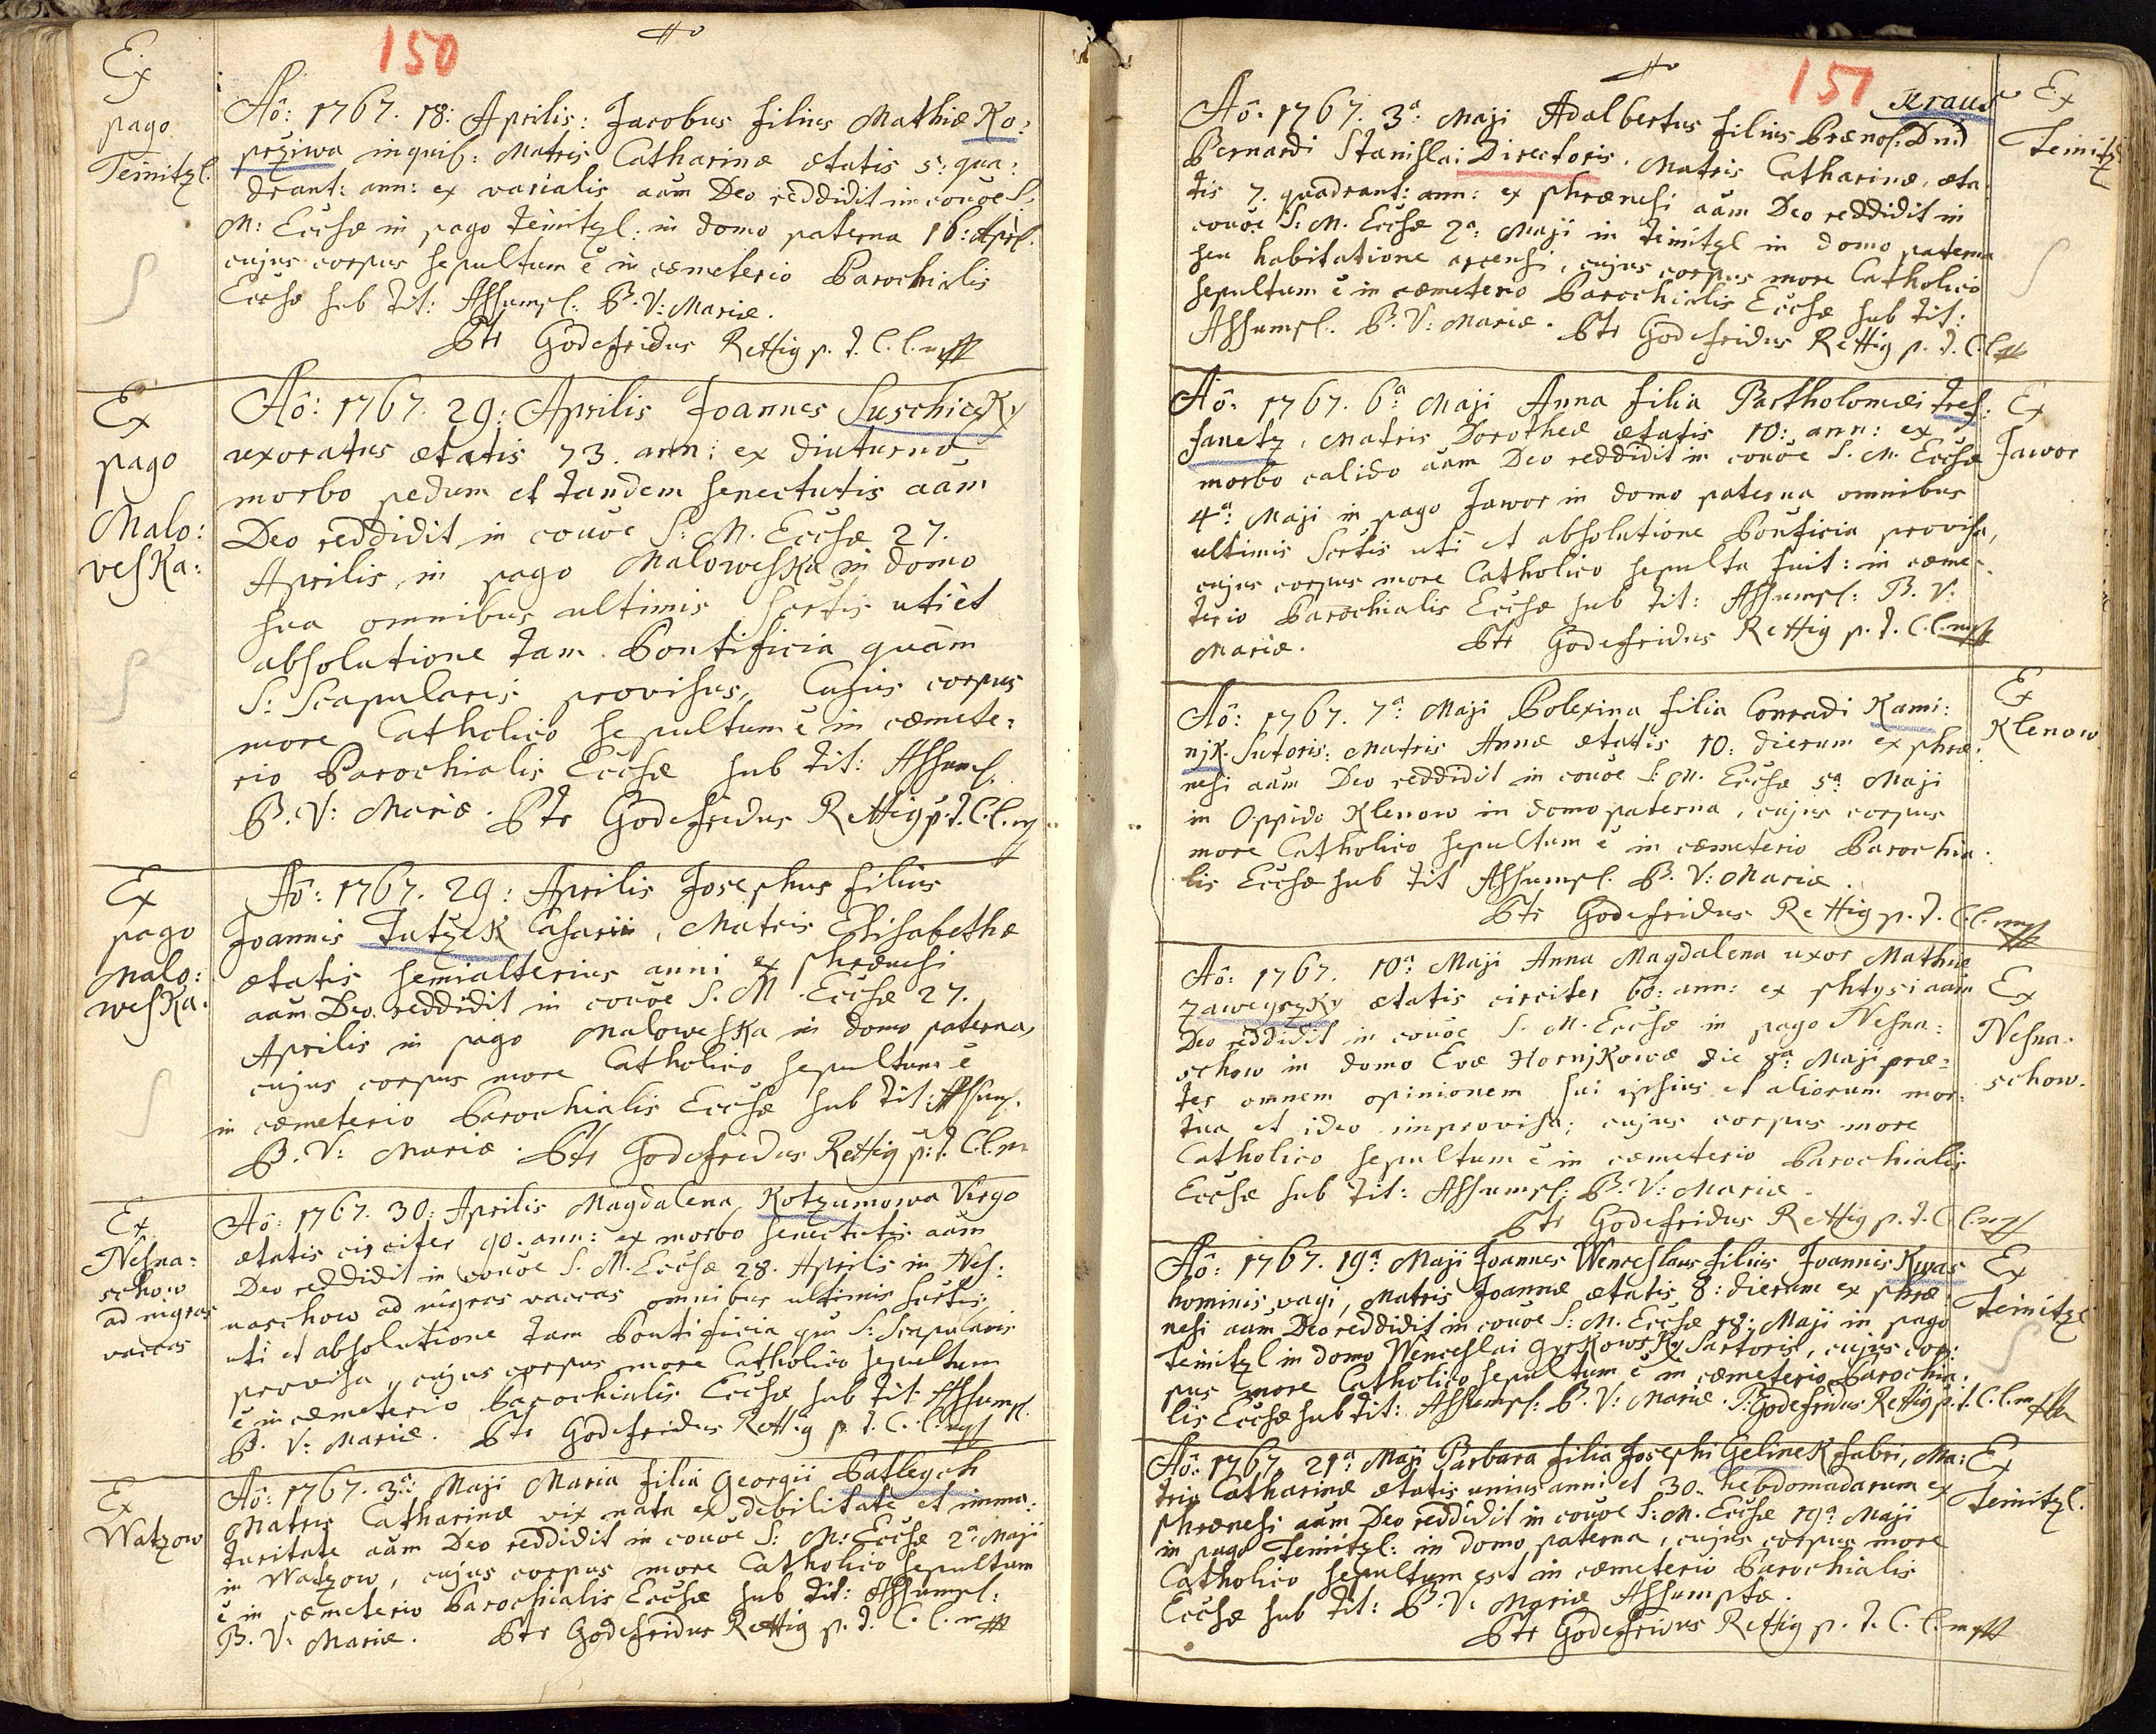 150
Ex
pago
Teinitzl.
Aô: 1767. 18: Aprilis: Jacobus filius Mathiæ Ko:
prziwa inquil: Matris Catharinæ ætatis 5: qua:
drant: ann: ex varialis aâm Deo reddidit in covôe S.
M: Eccłæ in pago Teinitzl: in domo paterna 16: Apri.
cujus corpus sepultum ê in cæmeterio Parochialis
Eccłæ sub tit: Assumpt. B. V: Mariæ.
Ptr Godefridus Rettig p. t. C. l. mp
Ex
pago
Malo:
veska:
Aô: 1767. 29: Aprilis Joannes Suschiczky
uxoratus ætatis 73. ann: ex diuturno
morbo pedum et tandem senectutis aâm
Deo reddidit in covôe S: M. Eccłæ 27.
Aprilis in pago Maloweska in domo
sua omnibus ultimis Sertis uti et
absolutione tam Pontificia quâm
S: Scapularis provisus, Cujus corpus
more Catholico sepultum ê in cæmete:
rio Parochialis Eccłæ sub tit: Assumt.
B. V: Mariæ. Ptr Godefridus Rettig p. t. C. l. m
Ex
pago
Malo:
weska.
Aô: 1767. 29: Aprilis Josephus filius
Joannis Tutzek Casarii, Matris Elisabethæ
ætatis semialterius anni ex phrænesi
aâm Deo reddidit in covôe S. M. Eccłæ 27.
Aprilis in pago Maloweska in domo paterna,
cujus corpus more Catholico sepultum ê
in cæmeterio Parochialis Eccłæ sub tit: Assum.
B. V: Mariæ. Ptr Godefridus Rettig p: t. C. l. m
Ex
Nesna:
schow
ad nigras
vaccas
Aô: 1767. 30: Aprilis Magdalena Kotzumowa Virgo
ætatis circiter 90. ann: ex morbo senectutis aâm
Deo reddidit in covôe S. M. Eccłæ 28. Aprilis in Nes:
naschow ad nigras vaccas omnibus ultimis sertis,
uti et absolutione tam Pontificia qm S: Scapularis
provisa, cujus corpus more Catholico sepultum
ê in cæmeterio Parochialis Eccłæ sub tit: Assumpt.
B. V: Mariæ. Ptr Godefridus Rettig p. t. C. l. mp
Ex
Watzow
Aô: 1767. 3a: Maji Maria filia Georgii Patleych
Matris Catharinæ vix nata ex debilitate et imma:
turitate aâm Deo reddidit in covôe S: M: Eccłæ 2a Maji
in Watzow, cujus corpus more Catholico sepultum
ê in cæmeterio Parochialis Eccłæ sub tit: Assumpt:
B. V: Mariæ. Ptr Godefridus Rettig p. t. C. l. m
151
Kraus
Aô. 1767. 3a: Maji Adalbertus filius Prænob. Dni
Bernardi Stanislai Directoris. Matris Catharinæ, æta:
tis 7. quadrant: ann: ex phrænesi aâm Deo reddidit in
covôe S: M. Eccłæ 2a: Maji in Teinitzl in domo paterna
seu habitatione arcensi, cujus corpus more Catholico
sepultum ê in cæmeterio Parochialis Eccłæ sub tit:
Assumpt. B. V: Mariæ. Ptr Godefridus Rettig p. t. C. l.
Ex
Teinitzl
Aô. 1767. 6a: Maji Anna filia Bartholomæi Tref:
fanetz, Matris Dorotheæ ætatis 10: ann: ex
morbo calido aâm Deo reddidit in covôe S. M. Eccłæ
4a: Maji in pago Jawor in domo paterna omnibus
ultimis Sertis uti et absolutione Pontificia provisa,
cujus corpus more Catholico sepulta fuit: in cæme:
terio Parochialis Eccłæ sub tit: Assumpt: B. V:
Mariæ. Ptr Godefridus Rettig p. t. C. l. mp
Ex
Jawor
Aô: 1767. 7a: Maji Polexina filia Conradi Kami:
njk. Sutoris: Matris Annæ ætatis 10: dierum ex phræ:
nesi aâm Deo reddidit in covôe S: M. Eccłæ 5a Maji
in Oppido Klenow in domo paterna, cujus corpus
more Catholico sepultum ê in cæmeterio Parochia:
lis Eccłæ sub tit Assumpt. B. V: Mariæ.
Ptr Godefridus Rettig p. t. C. l. mp
Ex
Klenow
Aô: 1767. 10a: Maji Anna Magdalena uxor Mathiæ
Zaweyszky ætatis circiter 60: ann: ex phtysi aâm
Deo reddidit in covôe S. M. Eccłæ in pago Nesna:
schow in domo Evæ Hornjkowæ die 8a: Maji præ:
ter omnem opinionem sui ipsius et aliorum mor:
tua et ideo improvisa; cujus corpus more
Catholico sepultum ê in cæmeterio Parochialis
Eccłæ sub tit: Assumpt: B. V: Mariæ.
Ptr Godefridus Rettig p. t. C. l. mp
Ex
Nesna:
schow.
Aô: 1767. 19a: Maji Joannes Wenceslaus filius Joannis Kwas
hominis vagi, Matris Joannæ ætatis 8: dierum ex phræ:
nesi aâm Deo reddidit in covôe S: M. Eccłæ 18: Maji in pago
Teinitzl in domo Wenceslai Gyrkowsky Sartoris, cujus cor:
pus more Catholico sepultum ê in cæmeterio Parochia:
lis Eccłæ sub tit: Assumpt: B. V: Mariæ P: Godefridus Rettig p. t. C. l. mp
Ex
Teinitzl
Aô: 1767. 21a: Maji Barbara filia Josephi Gelinek fabri, Ma:
tris Catharinæ ætatis unius anni et 30. hebdomadarum ex
phrænesi aâm Deo reddidit in covôe S: M. Eccłæ 19a Maji
in pago Teinitzl: in domo paterna, cujus corpus more
Catholico sepultum est in cæmeterio Parochialis
Eccłæ sub tit: B. V: Mariæ Assumptæ.
Ptr Godefridus Rettig p. t. C. l. mp
Ex
Teinitzl.